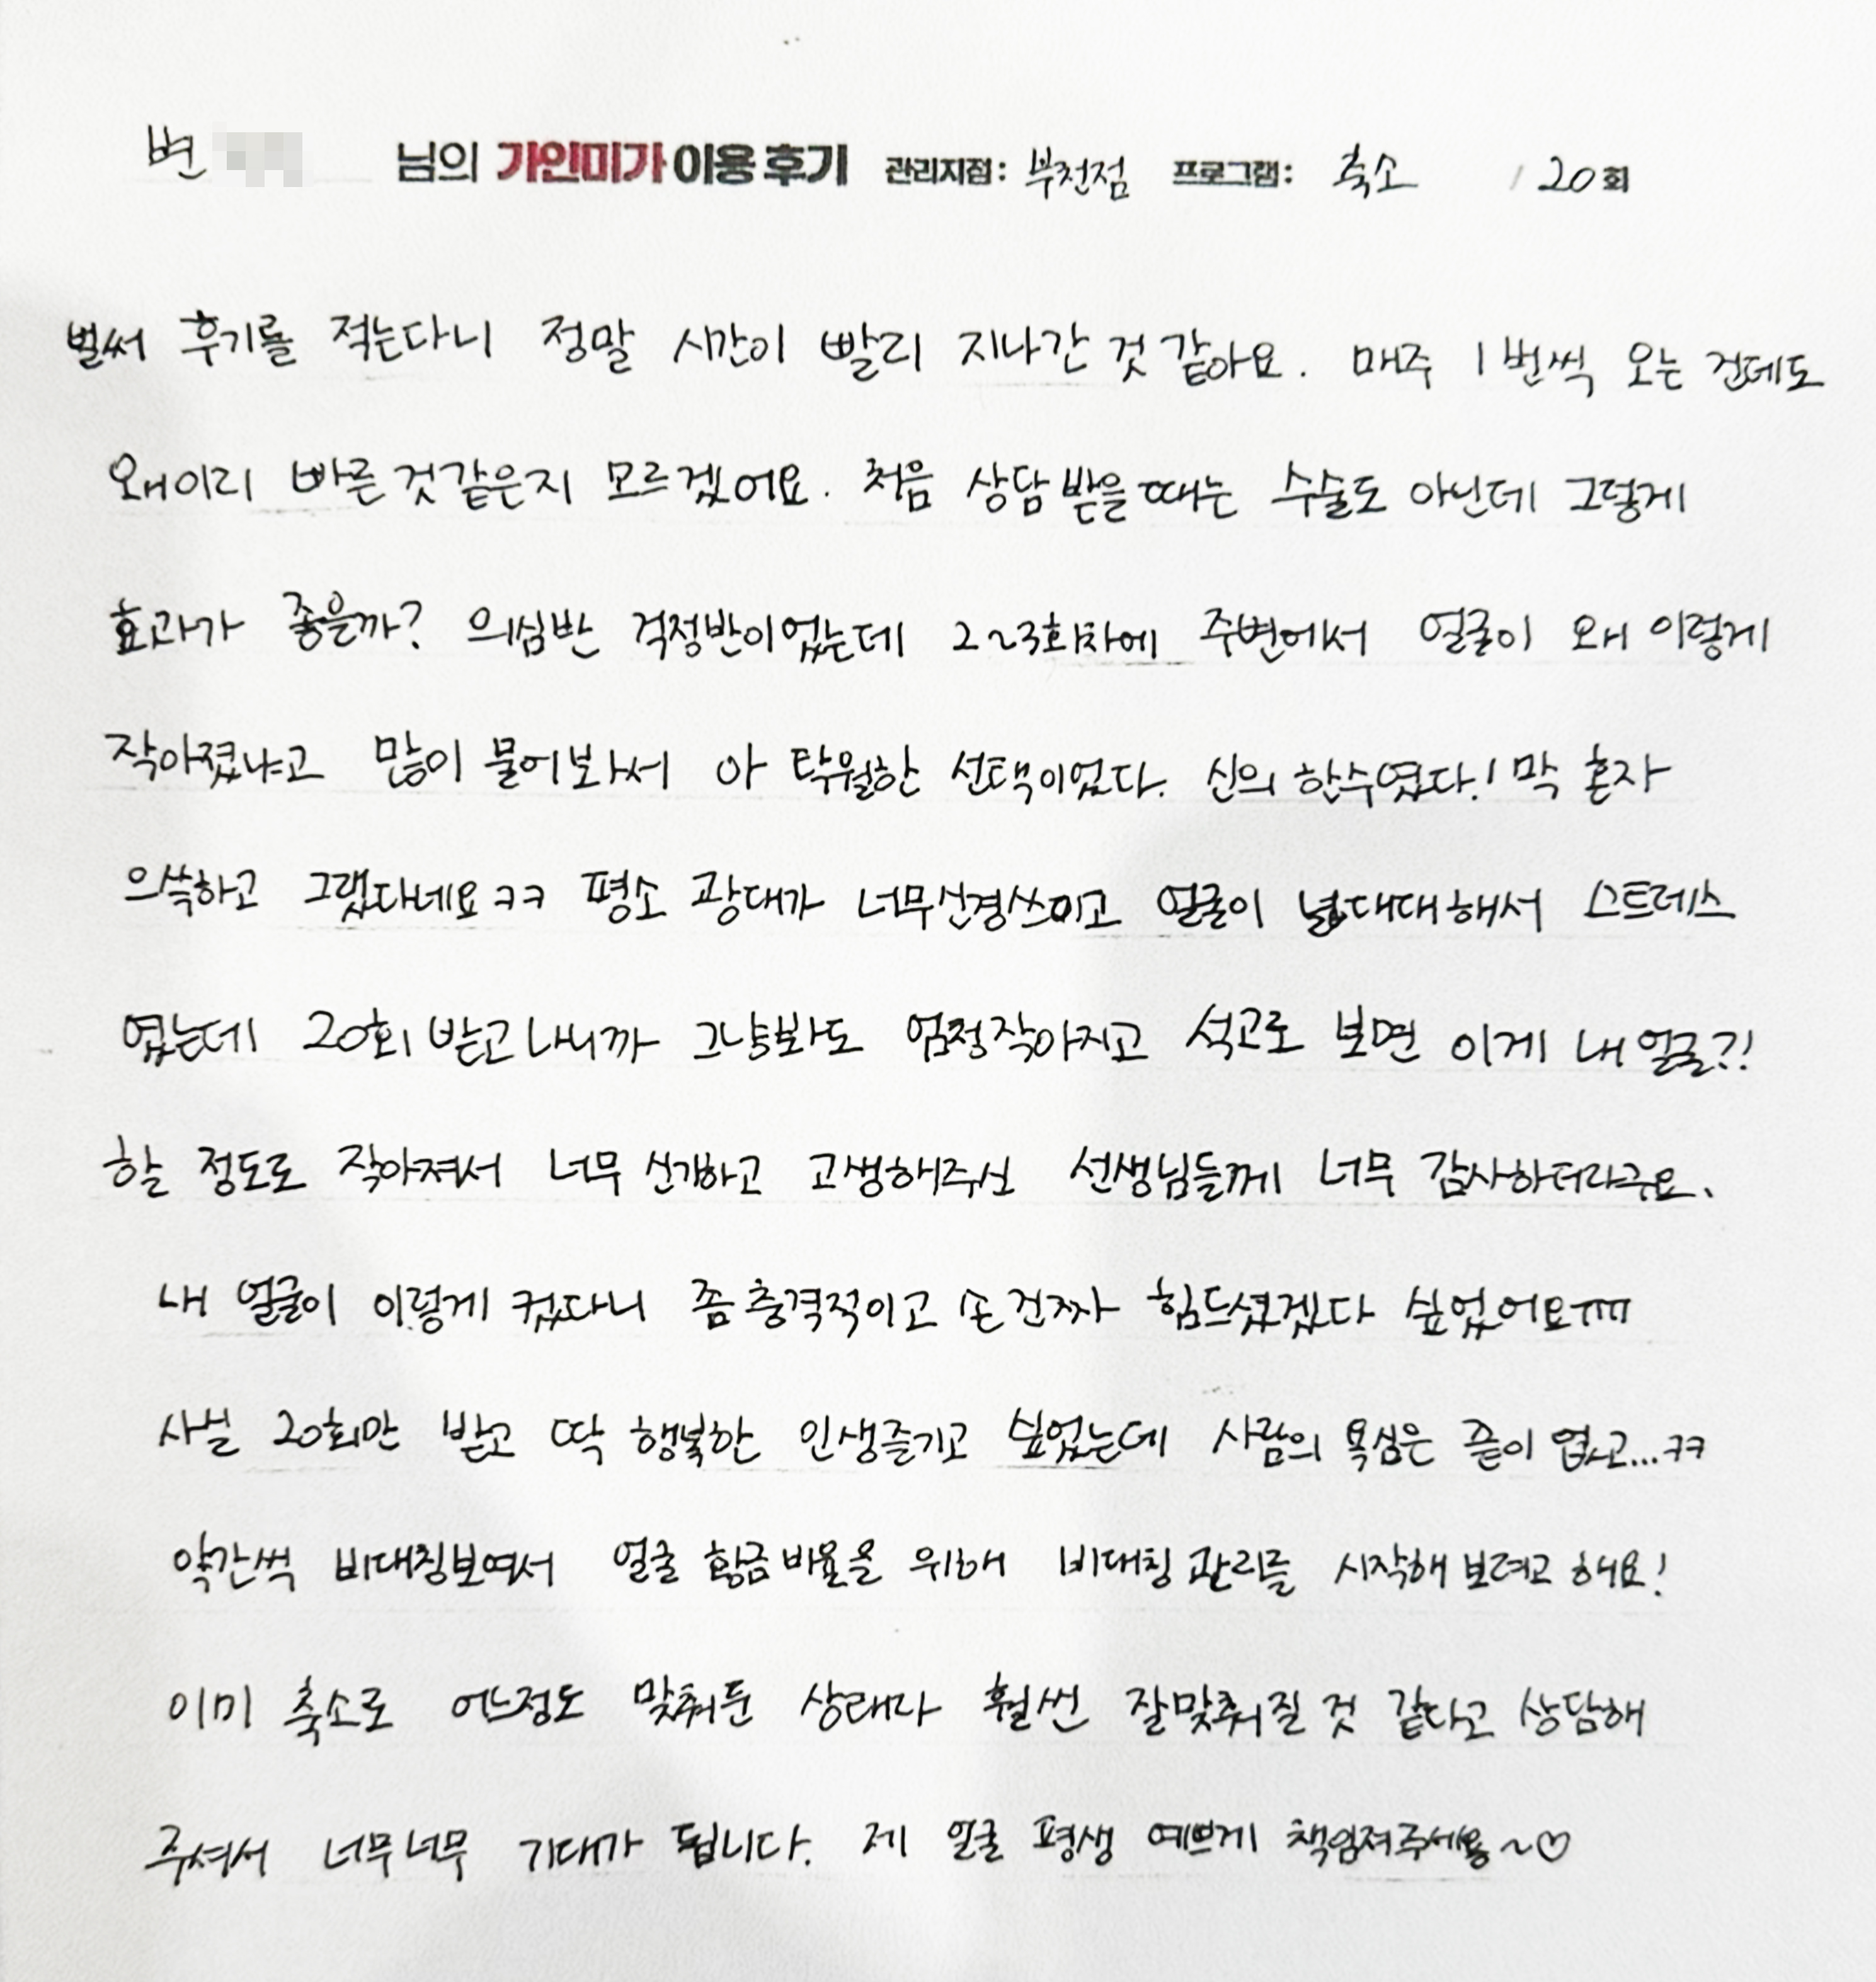 변 님의 가인미가 이용 후기 관리지점: 부천점 프로그램: 축소 / 20회
벌써 후기를 적는다니 정말 시간이 빨리 지나간 것 같아요. 매주 1번씩 오는 건데도
왜이리 빠른것같은지 모르겠어요. 처음 상담 받을때는 수술도 아닌데 그렇게
효과가 좋을까? 의심반 걱정반이었는데 2~3회차에 주변에서 얼굴이 왜 이렇게
작아졌냐고 많이 물어봐서 아 탁월한 선택이었다. 신의 한수였다! 막 혼자
으쓱하고 그랬다네요ㅋㅋ 평소 광대가 너무신경쓰이고 얼굴이 넓대대해서 스트레스
였는데 20회 받고나니까 그냥봐도 엄청작아지고 석고로 보면 이게 내 얼굴?!
할 정도로 작아져서 너무 신기하고 고생해주신 선생님들께 너무 감사하더라구요.
내 얼굴이 이렇게 컸다니 좀 충격적이고 손 진짜 힘드셨겠다 싶었어요ㅠㅠ
사실 20회만 받고 딱 행복한 인생즐기고 싶었는데 사람의 욕심은 끝이 없고...ㅋㅋ
약간씩 비대칭보여서 얼굴 황금비율을 위해 비대칭 관리를 시작해 보려고 해요!
이미 축소로 어느정도 맞춰둔 상태라 훨씬 잘맞춰질 것 같다고 상담해
주셔서 너무너무 기대가 됩니다. 제 얼굴 평생 예쁘게 책임져주세용~♡